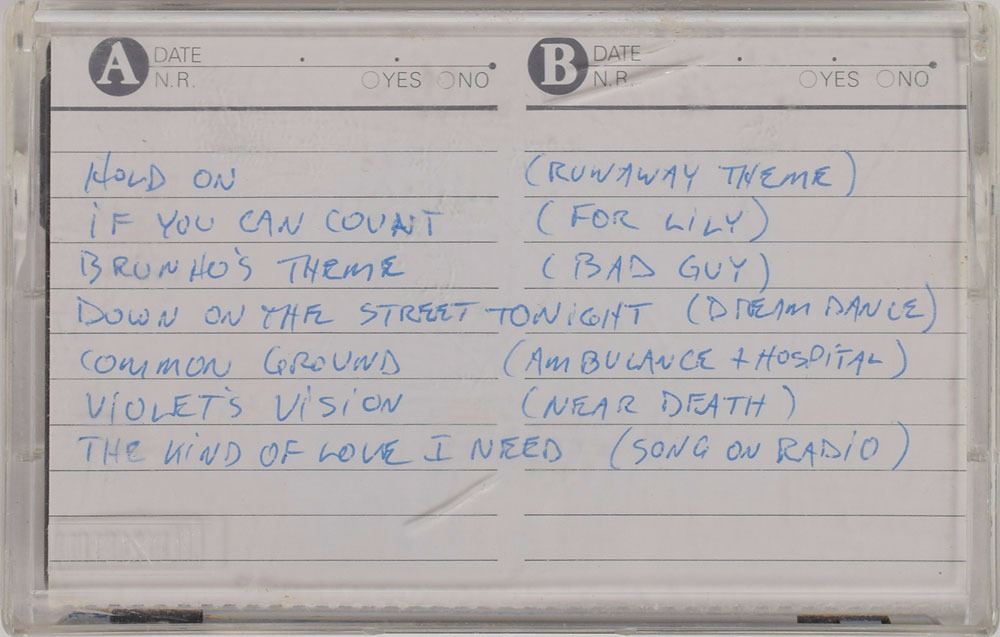 A DATE B DATE
N.R. YES NO N.R. YES NO
HOLD ON (RUNAWAY THEME)
IF YOU CAN COUNT (FOR LILY)
BRUNHO'S THEME (BAD GUY)
DOWN ON THE STREET TONIGHT (DREAM DANCE)
COMMON GROUND (AMBULANCE + HOSPITAL)
VIOLET'S VISION (NEAR DEATH)
THE KIND OF LOVE I NEED (SONG ON RADIO)
maxell